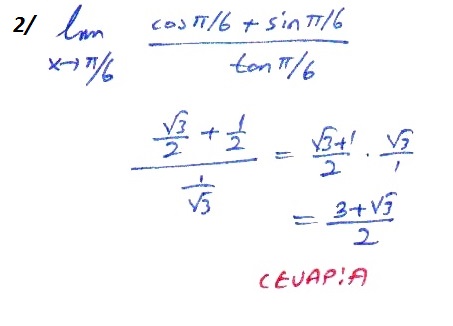 2/ lim x→π/6 (cos π/6 + sin π/6) / (tan π/6)
(√3/2 + 1/2) / (1/√3) = (√3+1)/2 · √3/1
= (3+√3)/2
CEVAP:A